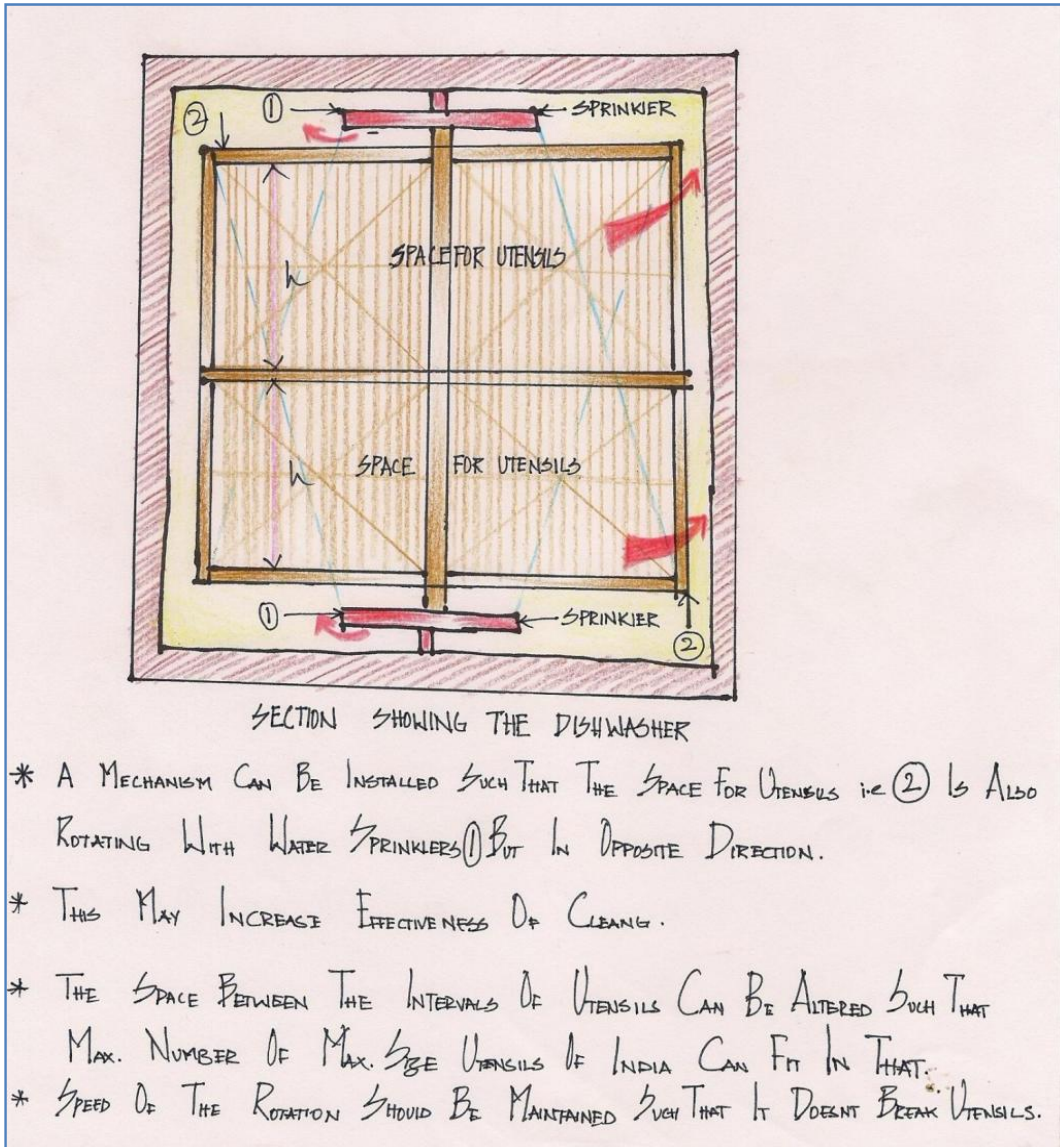 ① SPRINKLER
②
SPACE FOR UTENSILS
h
SPACE FOR UTENSILS
h
① SPRINKLER
②
SECTION SHOWING THE DISHWASHER
* A MECHANISM CAN BE INSTALLED SUCH THAT THE SPACE FOR UTENSILS i.e ② IS ALSO
ROTATING WITH WATER SPRINKLERS ① BUT IN OPPOSITE DIRECTION.
* THIS MAY INCREASE EFFECTIVENESS OF CLEANG.
* THE SPACE BETWEEN THE INTERVALS OF UTENSILS CAN BE ALTERED SUCH THAT
MAX. NUMBER OF MAX. SIZE UTENSILS OF INDIA CAN FIT IN THAT.
* SPEED OF THE ROTATION SHOULD BE MAINTAINED SUCH THAT IT DOESNT BREAK UTENSILS.